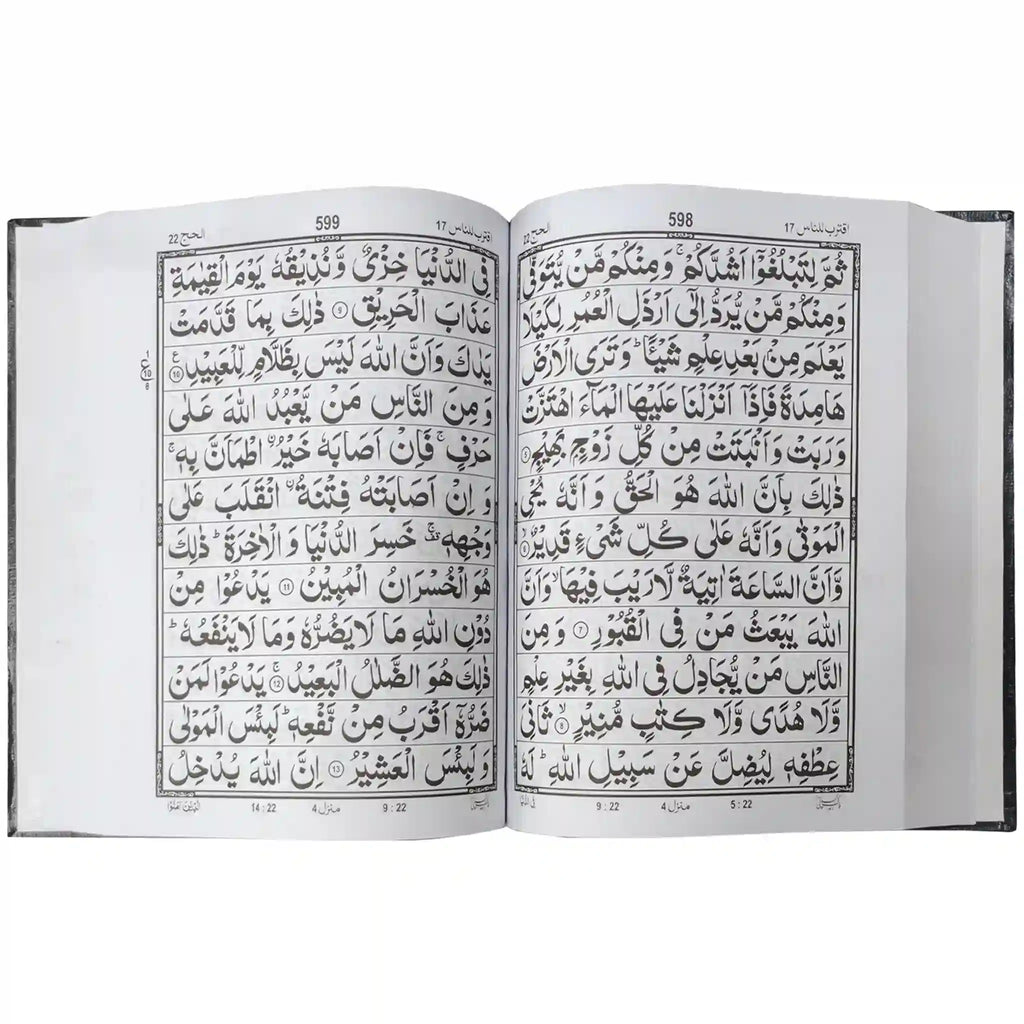 598
اقترب للناس 17
الحج 22
ثُمَّ لِتَبْلُغُوْۤا اَشُدَّكُمْ ۚ وَمِنْكُمْ مَّنْ يُّتَوَفّٰى
وَمِنْكُمْ مَّنْ يُّرَدُّ اِلٰۤى اَرْذَلِ الْعُمُرِ لِكَيْلَا
يَعْلَمَ مِنْۢ بَعْدِ عِلْمٍ شَيْـًٔا ؕ وَتَرَى الْاَرْضَ
هَامِدَةً فَاِذَاۤ اَنْزَلْنَا عَلَيْهَا الْمَآءَ اهْتَزَّتْ
وَرَبَتْ وَاَنْۢبَتَتْ مِنْ كُلِّ زَوْجٍۭ بَهِيْجٍ ۝5
ذٰلِكَ بِاَنَّ اللّٰهَ هُوَ الْحَقُّ وَاَنَّهٗ يُحْيِ
الْمَوْتٰى وَاَنَّهٗ عَلٰى كُلِّ شَيْءٍ قَدِيْرٌ ۝6
وَّاَنَّ السَّاعَةَ اٰتِيَةٌ لَّا رَيْبَ فِيْهَا ۙ وَاَنَّ
اللّٰهَ يَبْعَثُ مَنْ فِى الْقُبُوْرِ ۝7 وَمِنَ
النَّاسِ مَنْ يُّجَادِلُ فِى اللّٰهِ بِغَيْرِ عِلْمٍ
وَّلَا هُدًى وَّلَا كِتٰبٍ مُّنِيْرٍ ۝8 ثَانِيَ
عِطْفِهٖ لِيُضِلَّ عَنْ سَبِيْلِ اللّٰهِ ؕ لَهٗ
5 : 22
منزل 4
9 : 22
599
17 اقترب للناس
الحج 22
فِى الدُّنْيَا خِزْيٌ وَّنُذِيْقُهٗ يَوْمَ الْقِيٰمَةِ
عَذَابَ الْحَرِيْقِ ۝9 ذٰلِكَ بِمَا قَدَّمَتْ
يَدٰكَ وَاَنَّ اللّٰهَ لَيْسَ بِظَلَّامٍ لِّلْعَبِيْدِ ۝10
وَمِنَ النَّاسِ مَنْ يَّعْبُدُ اللّٰهَ عَلٰى
حَرْفٍ ۚ فَاِنْ اَصَابَهٗ خَيْرُ ۨاطْمَاَنَّ بِهٖ ۚ
وَاِنْ اَصَابَتْهُ فِتْنَةُ ۨانْقَلَبَ عَلٰى
وَجْهِهٖ ۚ خَسِرَ الدُّنْيَا وَالْاٰخِرَةَ ؕ ذٰلِكَ
هُوَ الْخُسْرَانُ الْمُبِيْنُ ۝11 يَدْعُوْا مِنْ
دُوْنِ اللّٰهِ مَا لَا يَضُرُّهٗ وَمَا لَا يَنْفَعُهٗ ؕ
ذٰلِكَ هُوَ الضَّلٰلُ الْبَعِيْدُ ۝12 يَدْعُوْا لَمَنْ
ضَرُّهٗۤ اَقْرَبُ مِنْ نَّفْعِهٖ ؕ لَبِئْسَ الْمَوْلٰى
وَلَبِئْسَ الْعَشِيْرُ ۝13 اِنَّ اللّٰهَ يُدْخِلُ
9 : 22
منزل 4
14 : 22